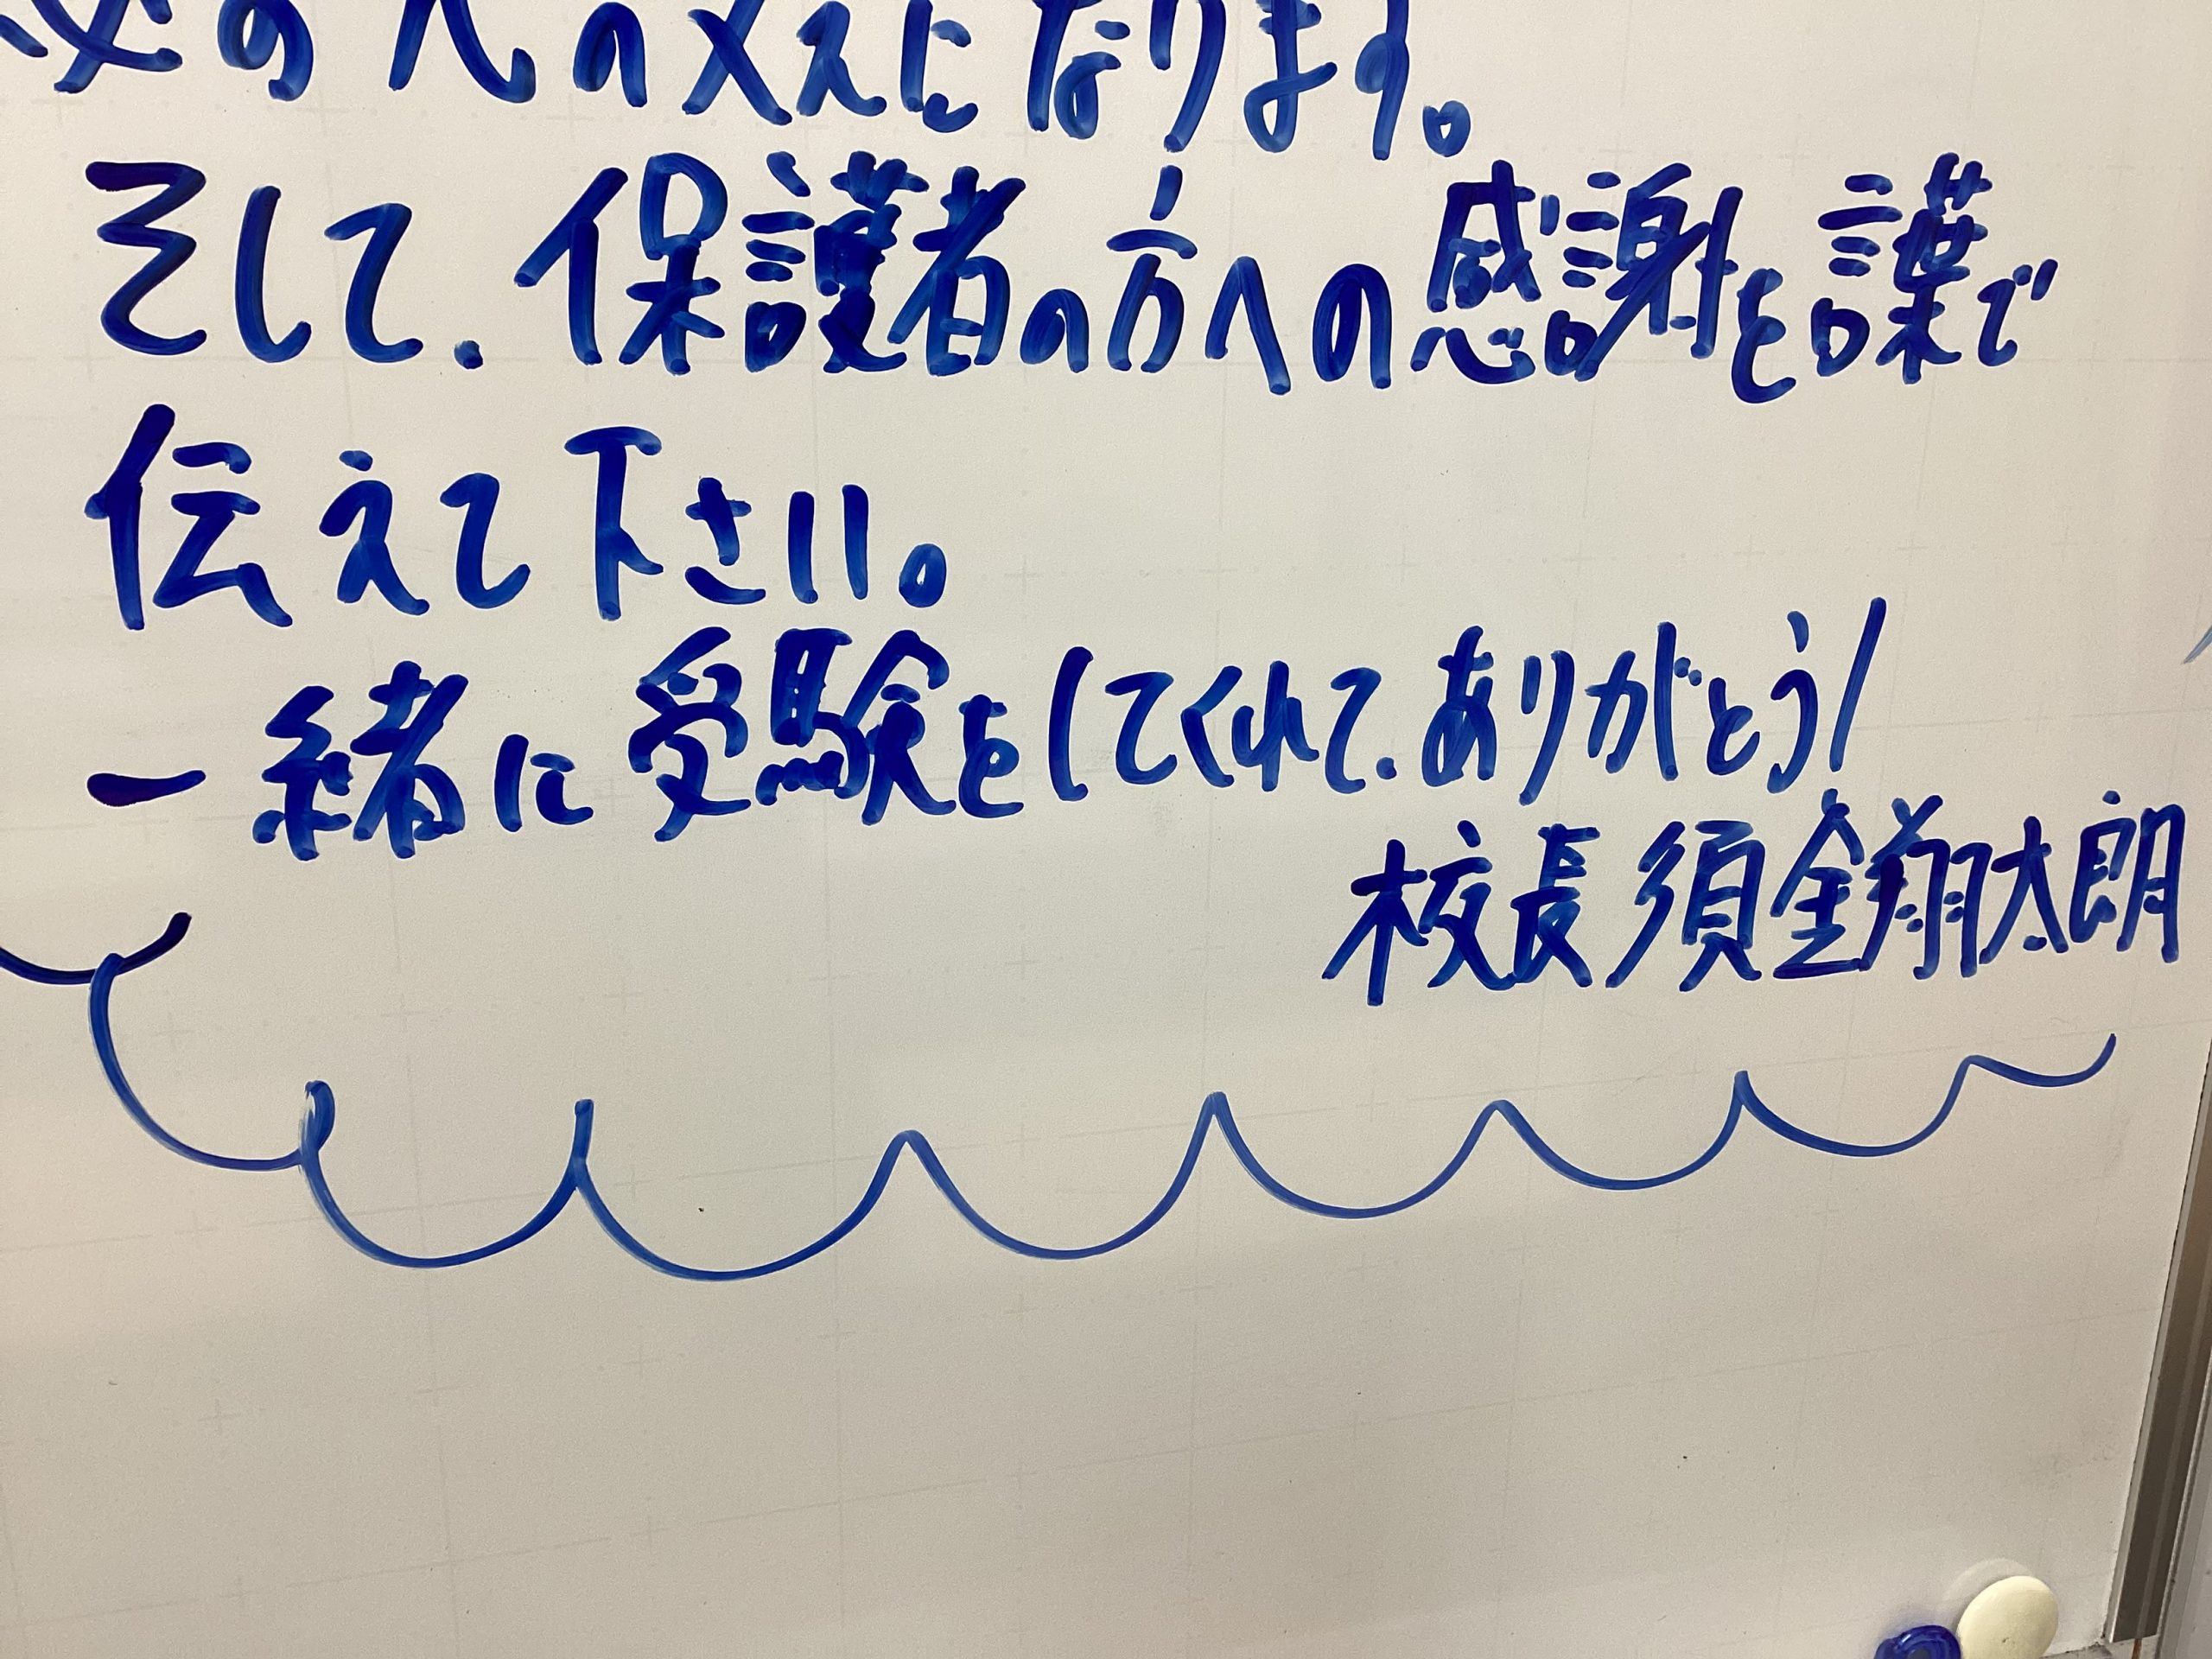 の人の支えになります。
そして、保護者の方への感謝を言葉で
伝えて下さい。
一緒に受験をしてくれて、ありがとう!
校長 須釡翔太朗